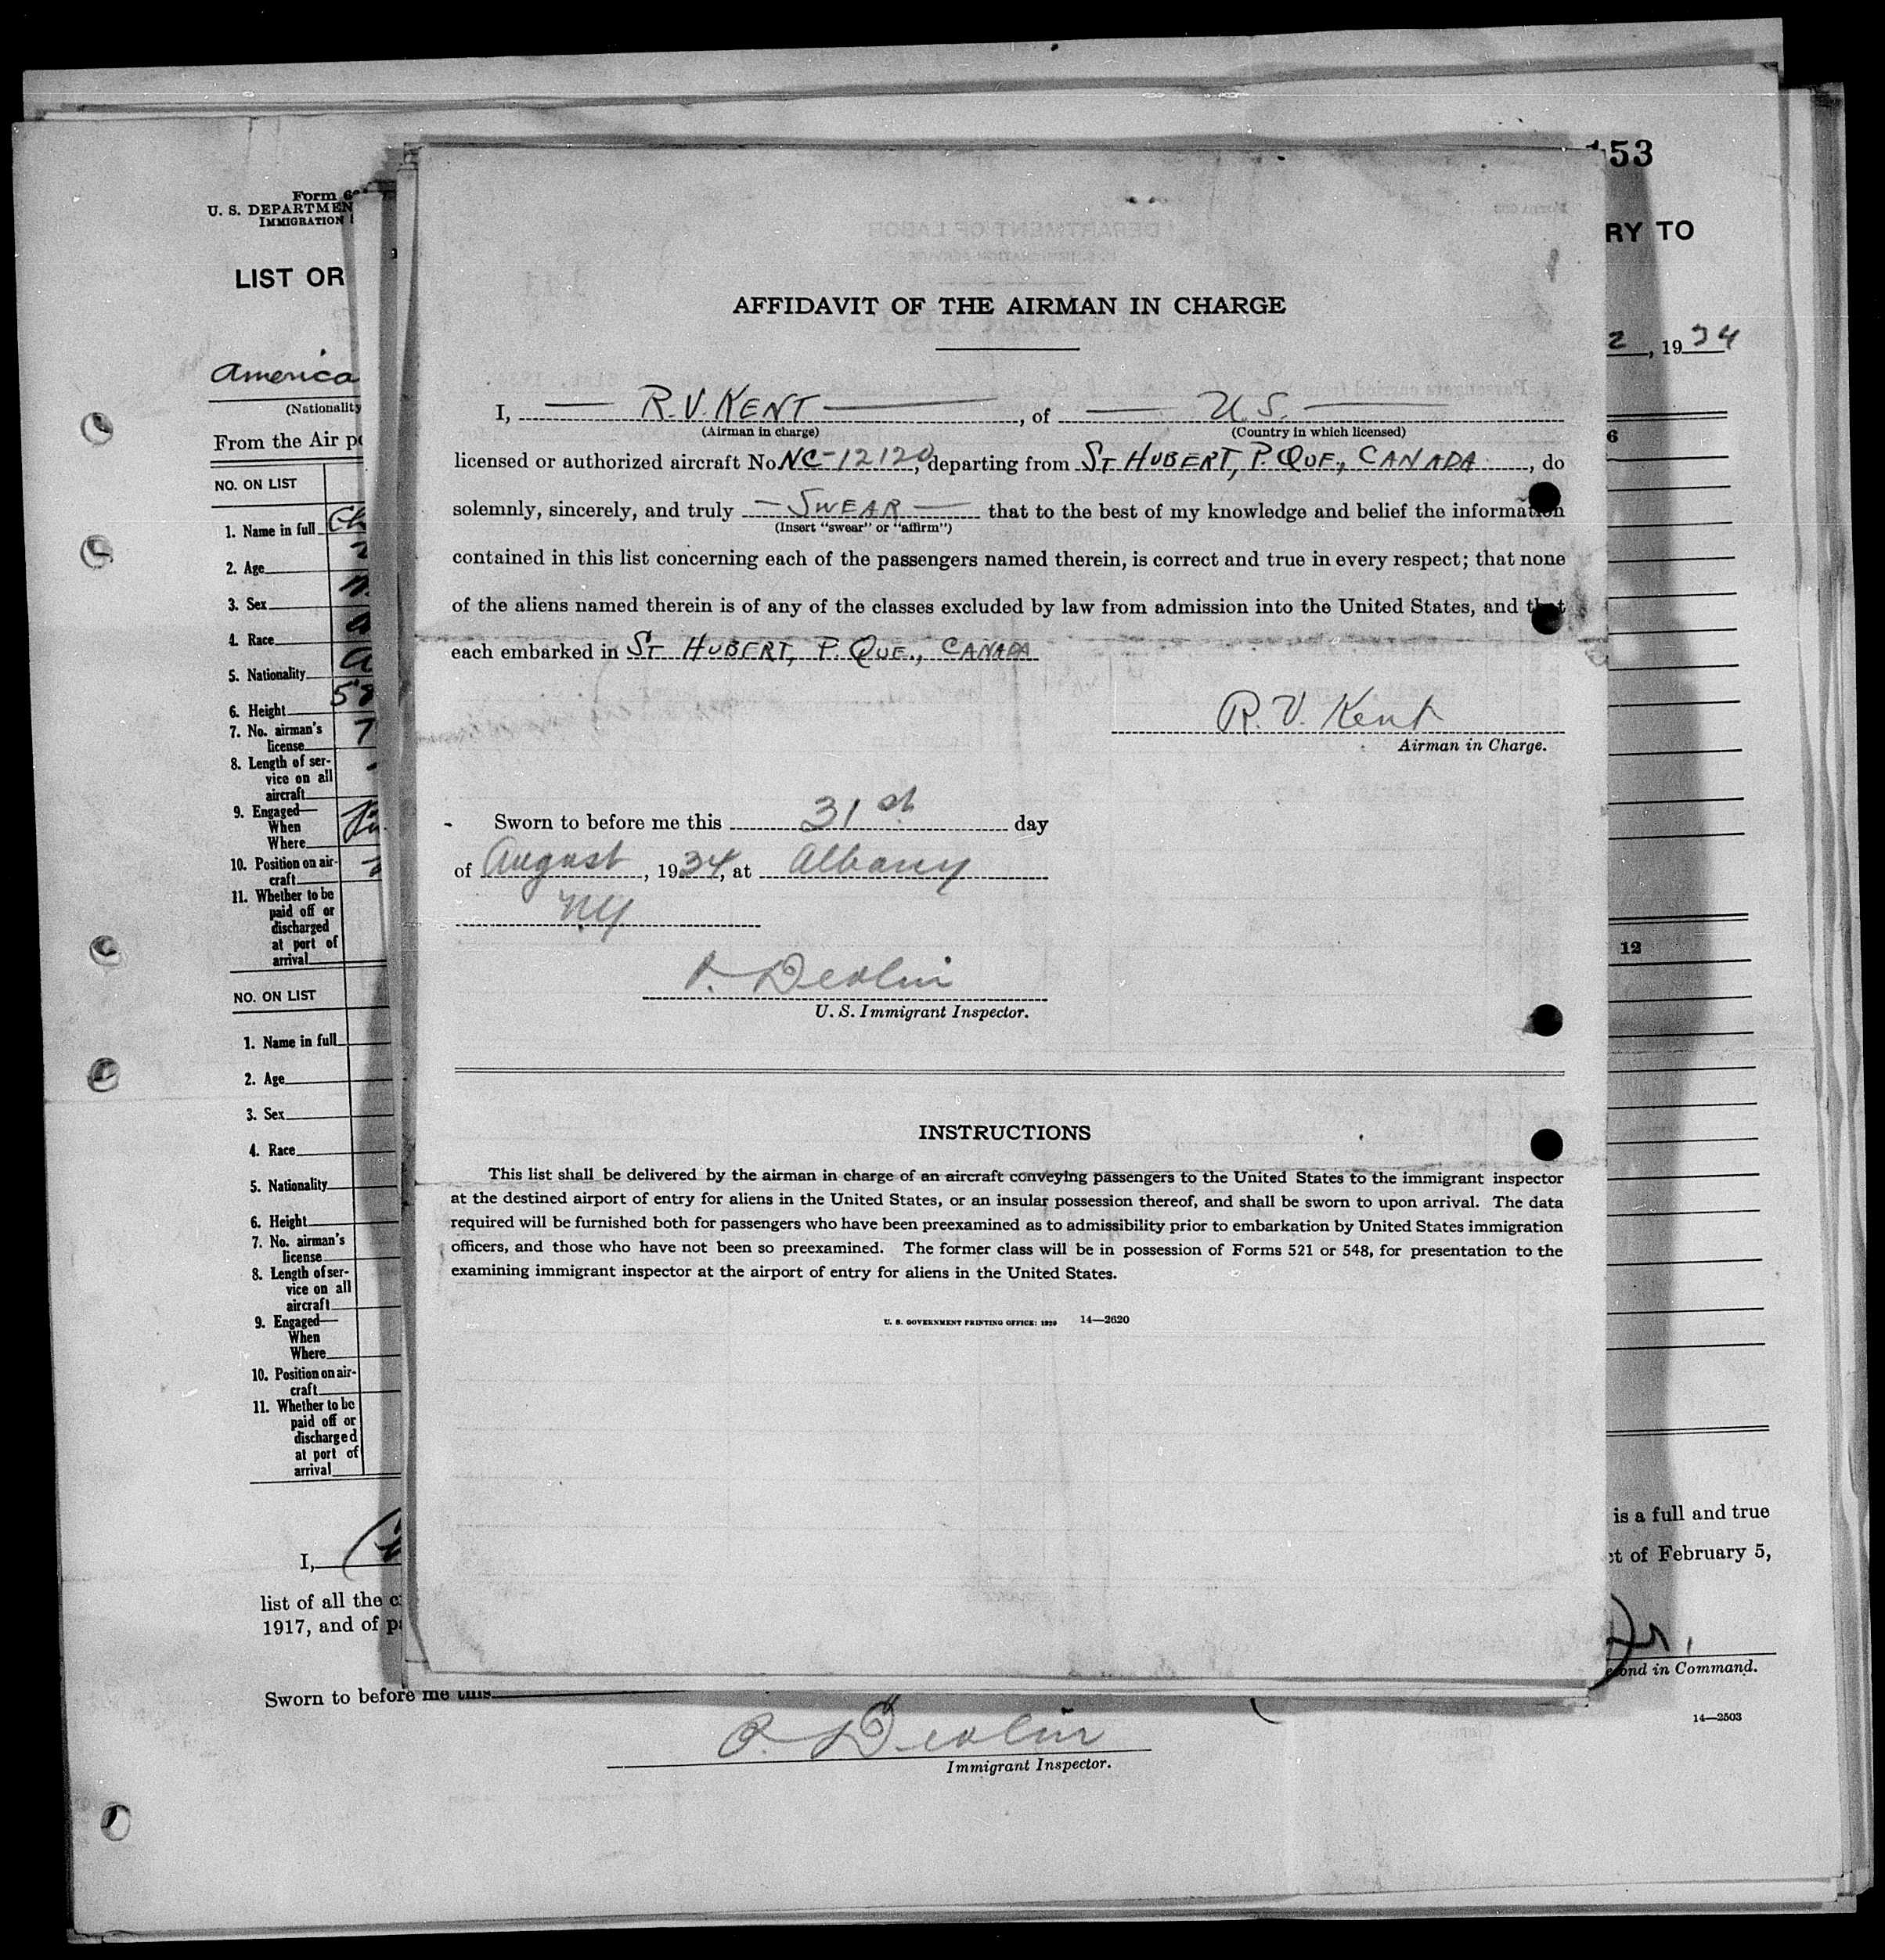 153
Form
U. S. DEPARTMEN
IMMIGRATION
RY TO
LIST OR
2, 1934
America
(Nationality
From the Air po
AFFIDAVIT OF THE AIRMAN IN CHARGE
I, R.V. KENT, of U.S.
(Airman in charge) (Country in which licensed)
licensed or authorized aircraft No. NC-12120, departing from ST HUBERT, P. QUE., CANADA, do
solemnly, sincerely, and truly SWEAR that to the best of my knowledge and belief the information
(Insert "swear" or "affirm")
contained in this list concerning each of the passengers named therein, is correct and true in every respect; that none
of the aliens named therein is of any of the classes excluded by law from admission into the United States, and that
each embarked in ST HUBERT, P. QUE., CANADA
R. V. Kent
Airman in Charge.
Sworn to before me this 31st day
of August, 1934, at Albany
NY
P. Devlin
U. S. Immigrant Inspector.
INSTRUCTIONS
This list shall be delivered by the airman in charge of an aircraft conveying passengers to the United States to the immigrant inspector
at the destined airport of entry for aliens in the United States, or an insular possession thereof, and shall be sworn to upon arrival. The data
required will be furnished both for passengers who have been preexamined as to admissibility prior to embarkation by United States immigration
officers, and those who have not been so preexamined. The former class will be in possession of Forms 521 or 548, for presentation to the
examining immigrant inspector at the airport of entry for aliens in the United States.
U. S. GOVERNMENT PRINTING OFFICE: 1929 14—2620
NO. ON LIST
6
1. Name in full
2. Age
3. Sex
4. Race
5. Nationality
6. Height
7. No. airman's
license
8. Length of ser-
vice on all
aircraft
9. Engaged—
When
Where
10. Position on air-
craft
11. Whether to be
paid off or
discharged
at port of
arrival
NO. ON LIST
12
1. Name in full
2. Age
3. Sex
4. Race
5. Nationality
6. Height
7. No. airman's
license
8. Length of ser-
vice on all
aircraft
9. Engaged—
When
Where
10. Position on air-
craft
11. Whether to be
paid off or
discharged
at port of
arrival
I, is a full and true
list of all the c ct of February 5,
1917, and of pa
Jr.
cond in Command.
Sworn to before me this
14—2503
P. Devlin
Immigrant Inspector.